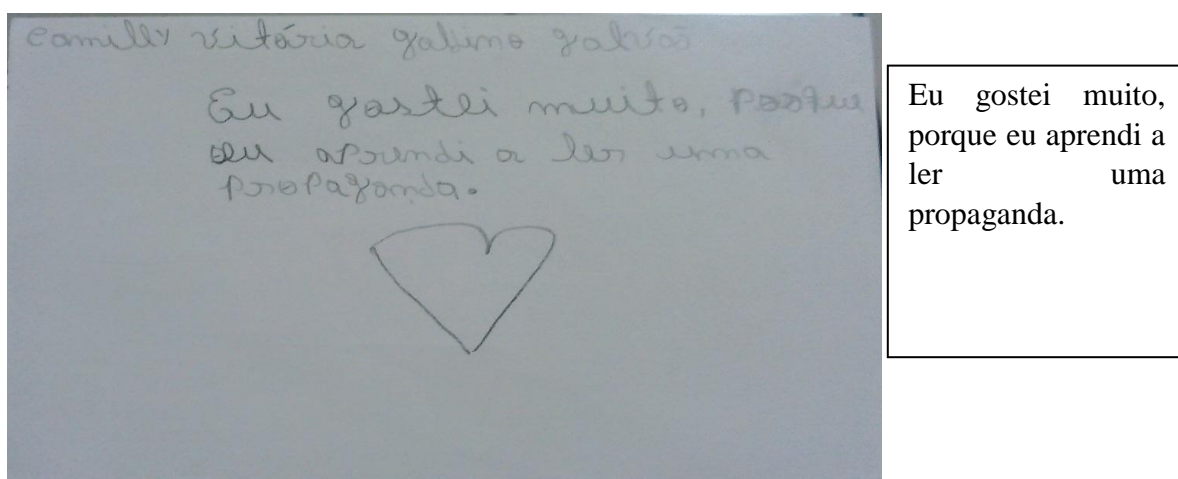 Camilly vitória galvão
Eu gostei muito, porque
eu aprendi a ler uma
propaganda.
Eu gostei muito,
porque eu aprendi a
ler uma
propaganda.